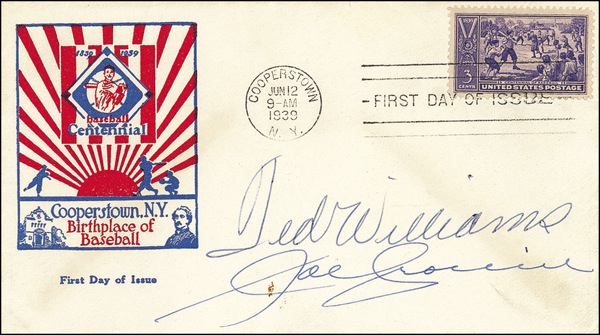 1839 1939
baseball
Centennial
Cooperstown, N.Y.
Birthplace of
Baseball
First Day of Issue
COOPERSTOWN
JUN 12
9-AM
1939
N.Y.
FIRST DAY OF ISSUE
1839 1939
CENTENNIAL OF BASEBALL
3
CENTS
UNITED STATES POSTAGE
Ted Williams
Joe Cronin